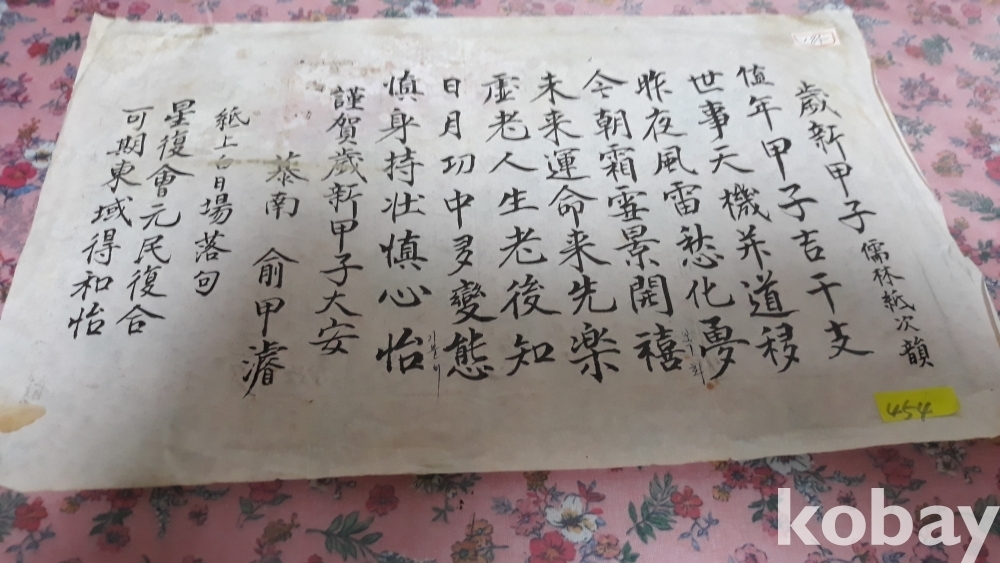 歲新甲子 儒林紙次韻
値年甲子吉干支
世事天機并道移
昨夜風雷愁化夢
今朝霜雪景開禧
未来運命来先楽
虛老人生老後知
日月功中多變態
愼身持壯愼心怡
謹賀歲新甲子大安
泰南 俞甲濬
紙上白日場落句
星復會元民復合
可期東域得和怡
454
kobay